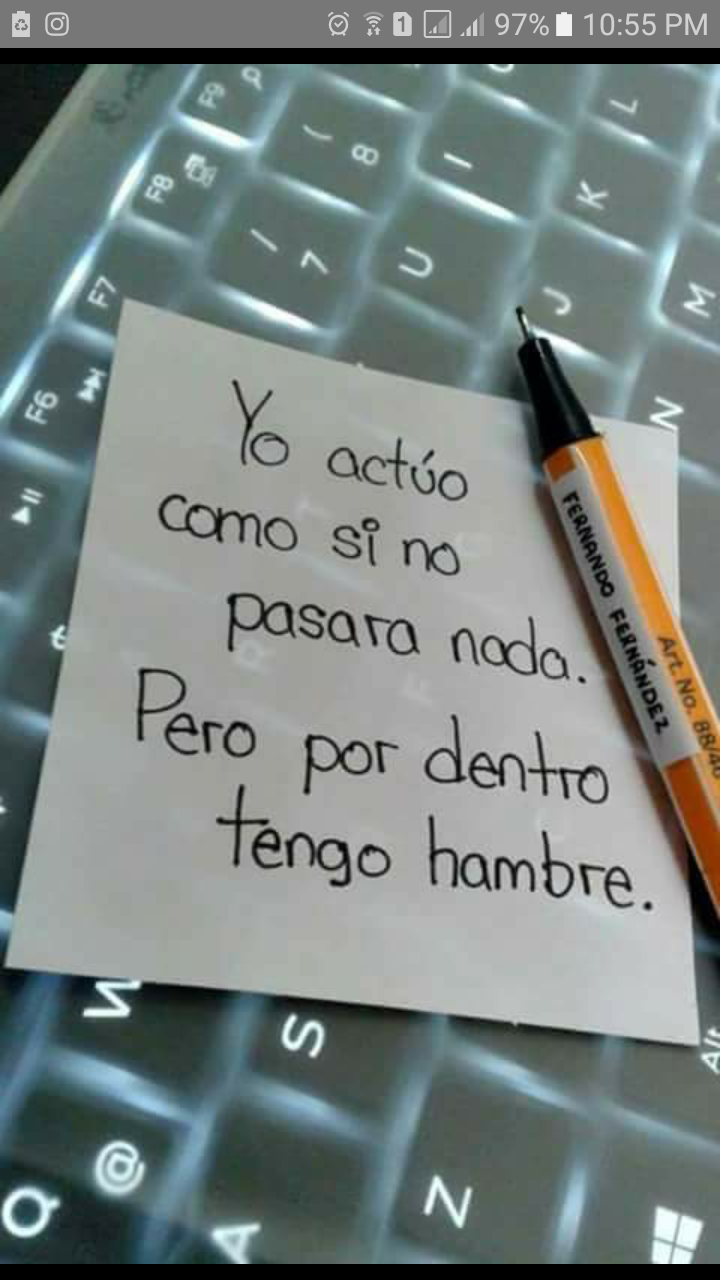 1 97% 10:55 PM
F9
( 8
I
L
F8
/ 7
U
K
F7
J
M
F6
N
Yo actúo
como si no
pasara nada.
Pero por dentro
tengo hambre.
FERNANDO FERNÁNDEZ
Art. No. 88/46
W
S
Alt
@
Q
A
Z